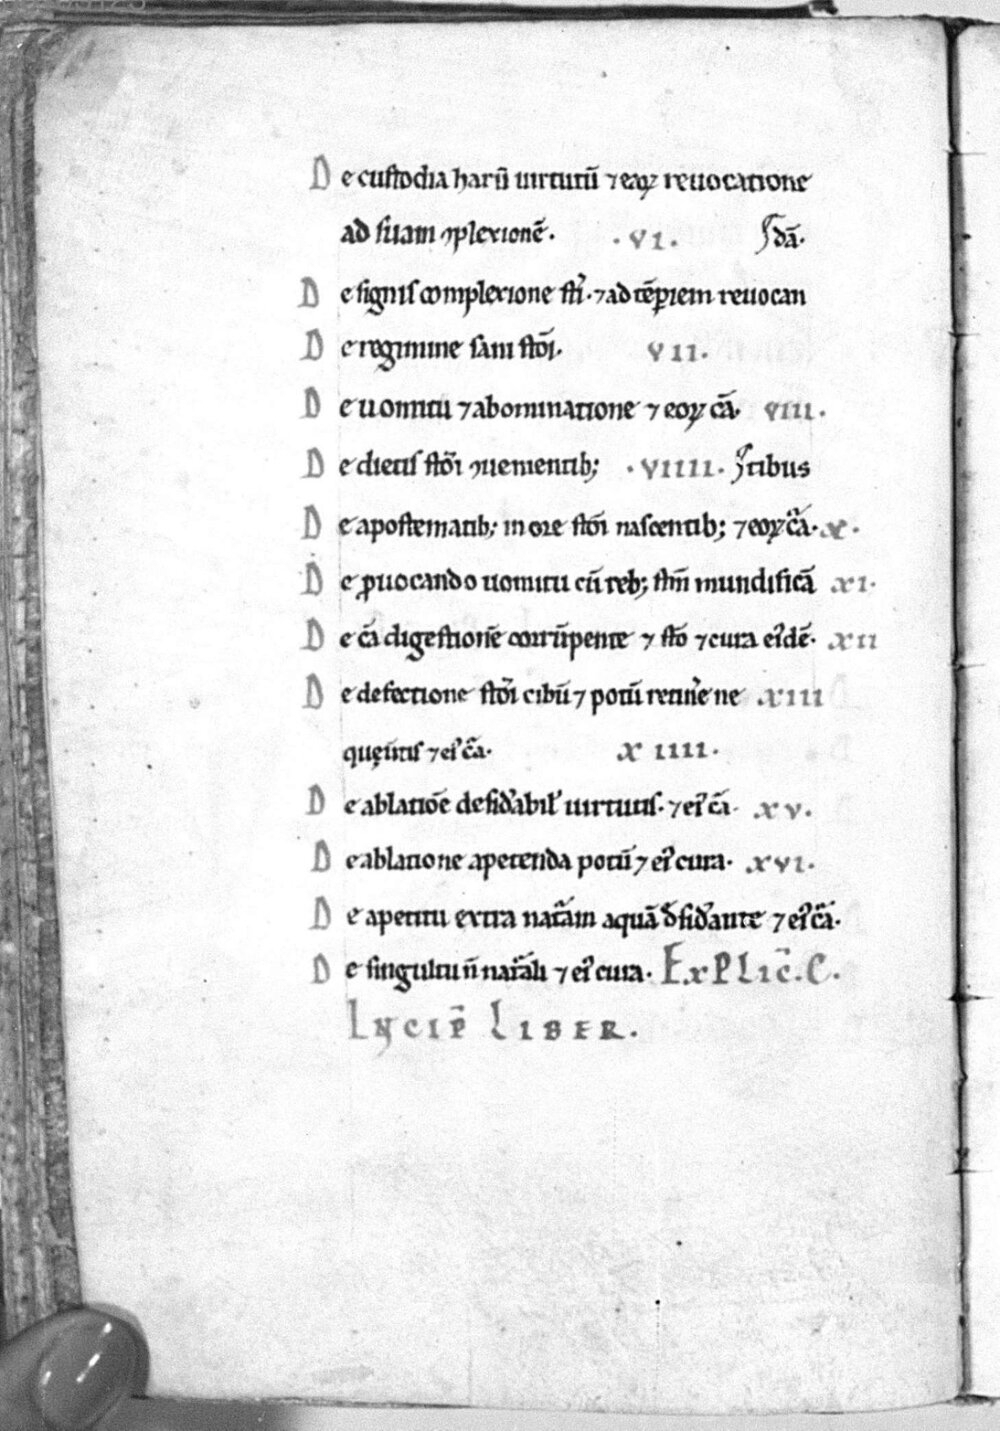 De custodia harū uirtutū ⁊ eaꝝ reuocatione
ad suam ꝯplexionē. .VI. dā.
De signis complexione stī. ⁊ ad tēꝑiem reuocan
De regimine sani stōi. VII.
De uomitu ⁊ abominatione ⁊ eoꝝ cā. VIII.
De dietis stōi ꝯuenientib; .VIIII. tibus
De apostematib; in ore stōi nascentib; ⁊ eoꝝ cā. X.
De ꝓuocando uomitu cū reb; stm̄ mundificā XI.
De cā digestionē corrūpente ⁊ stō ⁊ cura eidē. XII
De defectione stōi cibū ⁊ potū retinēne XIII
quęntis ⁊ ei cā. XIIII.
De ablatiōe desiderabil uirtutis. ⁊ ei cā. XV.
De ablatione apetenda potū ⁊ ei cura. XVI.
De apetitu extra natām aquā desiderante ⁊ ei cā.
De singultu n̄ natāli ⁊ ei cura. ExPLIC̄. C.
INCIP̄ LIBER.